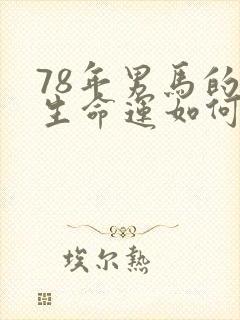 78年男馬的
生命運如何
埃尔熱